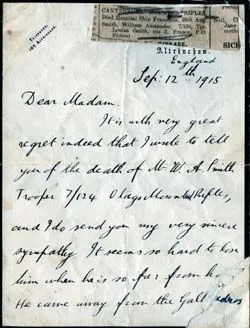 Died Hospital Ship
Smith, William Alexander, 7/124,
Altrincham,
England
Sep: 12th 1915
Dear Madam.
It is with very great
regret indeed that I write to tell
you of the death of Mr W. A. Smith
Trooper 7/124 Otago Mounted Rifles,
and I do send you my very sincere
sympathy. It seems so hard to lose
him when he is so far from
He came away from the